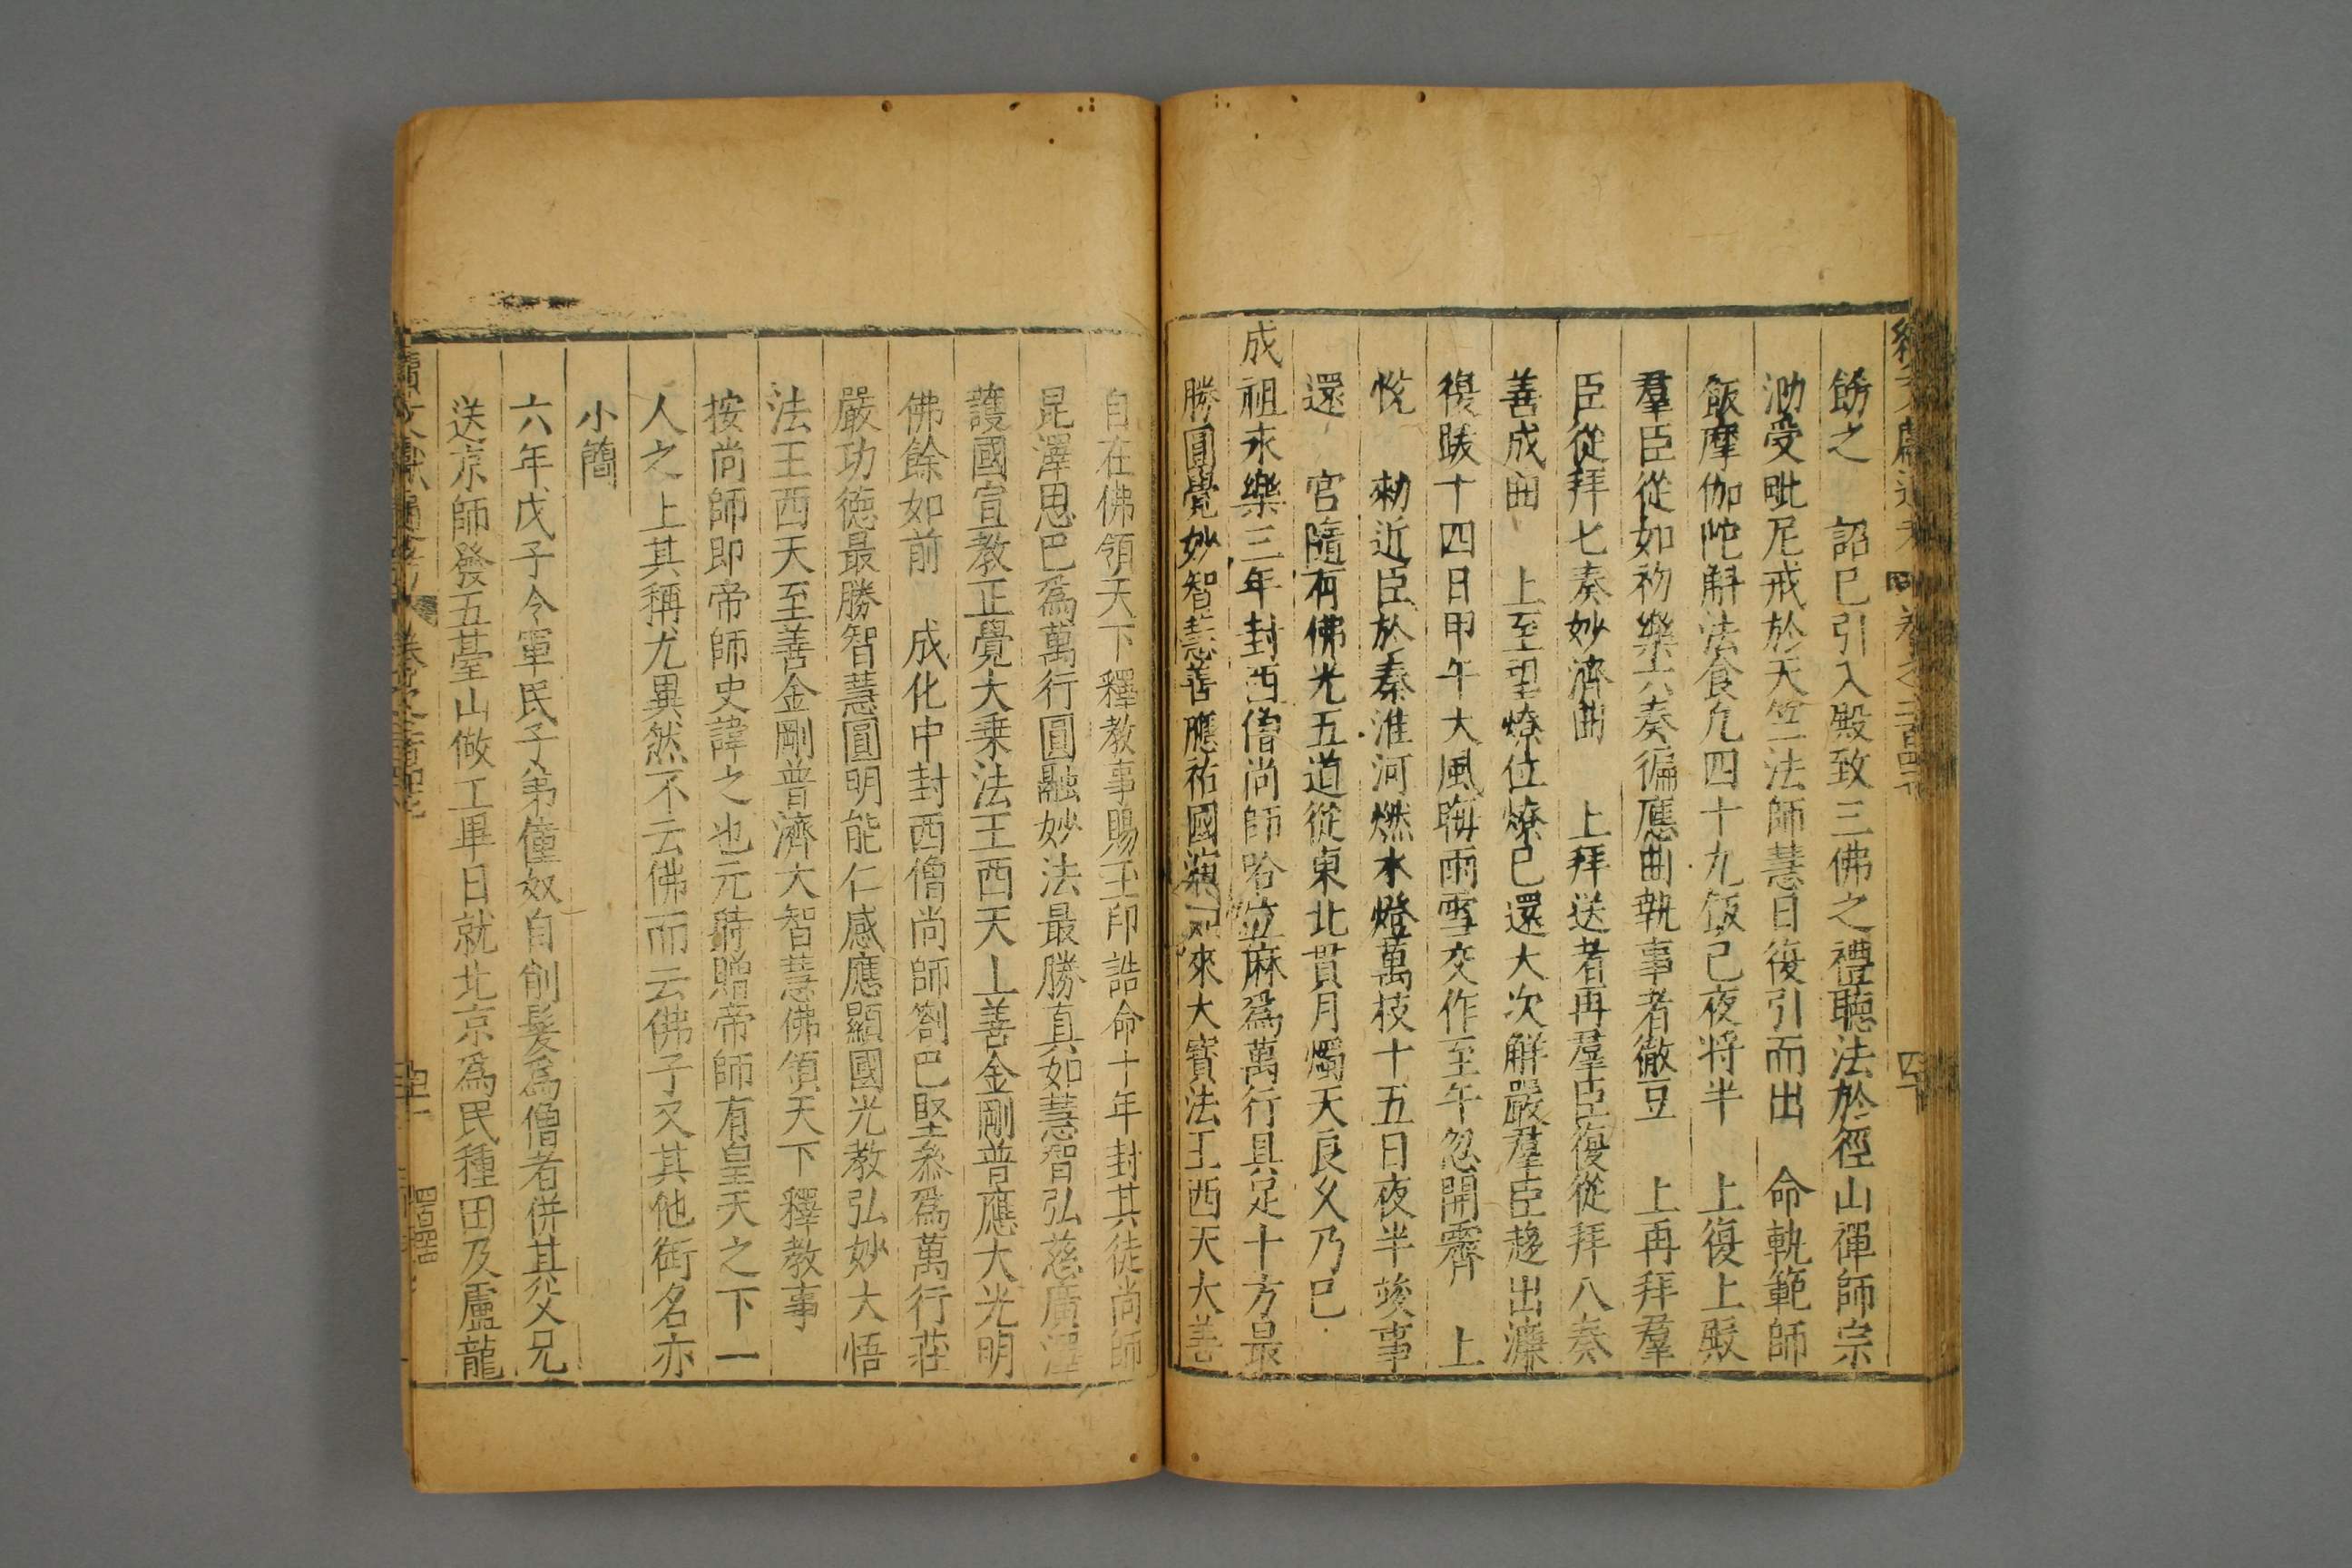 餝之　詔已引入殿致三佛之禮聽法於徑山禪師宗
泐受毗尼戒於天竺法師慧日復引而出　命軌範師
飯摩伽陀斛法食凢四十九飯已夜將半　上復上殿
羣臣從如初樂六奏徧應曲執事者徹豆　上再拜羣
臣從拜七奏妙濟曲　上拜送者再羣臣復從拜八奏
善成曲　上至望燎位燎已還大次解嚴羣臣趍出濂
復跋十四日甲午大風晦雨雪交作至午忽開霽　上
恱　勑近臣於秦淮河燃水燈萬枝十五日夜半竣事
還　宮隨有佛光五道從東北貫月燭天良乆乃已
成祖永樂三年封西僧尚師哈立麻爲萬行具足十方最
勝圓覺妙智慧善應祐國演教如來大寶法王西天大善
自在佛領天下釋教事賜玉印誥命十年封其徒尚師
昆澤思巴爲萬行圓融妙法最勝真如慧智弘慈廣濟
護國宣教正覺大乗法王西天上善金剛普應大光明
佛餘如前　成化中封西僧尚師劄巴堅叅爲萬行莊
嚴功徳最勝智慧圓明能仁感應顯國光教弘妙大悟
法王西天至善金剛普濟大智慧佛領天下釋教事
按尚師即帝師史諱之也元時贈帝師有皇天之下一
人之上其稱尤異然不云佛而云佛子又其他銜名亦
小簡
六年戊子令軍民子弟僮奴自削髪爲僧者併其父兄
送京師發五臺山做工畢日就北京爲民種田及盧龍